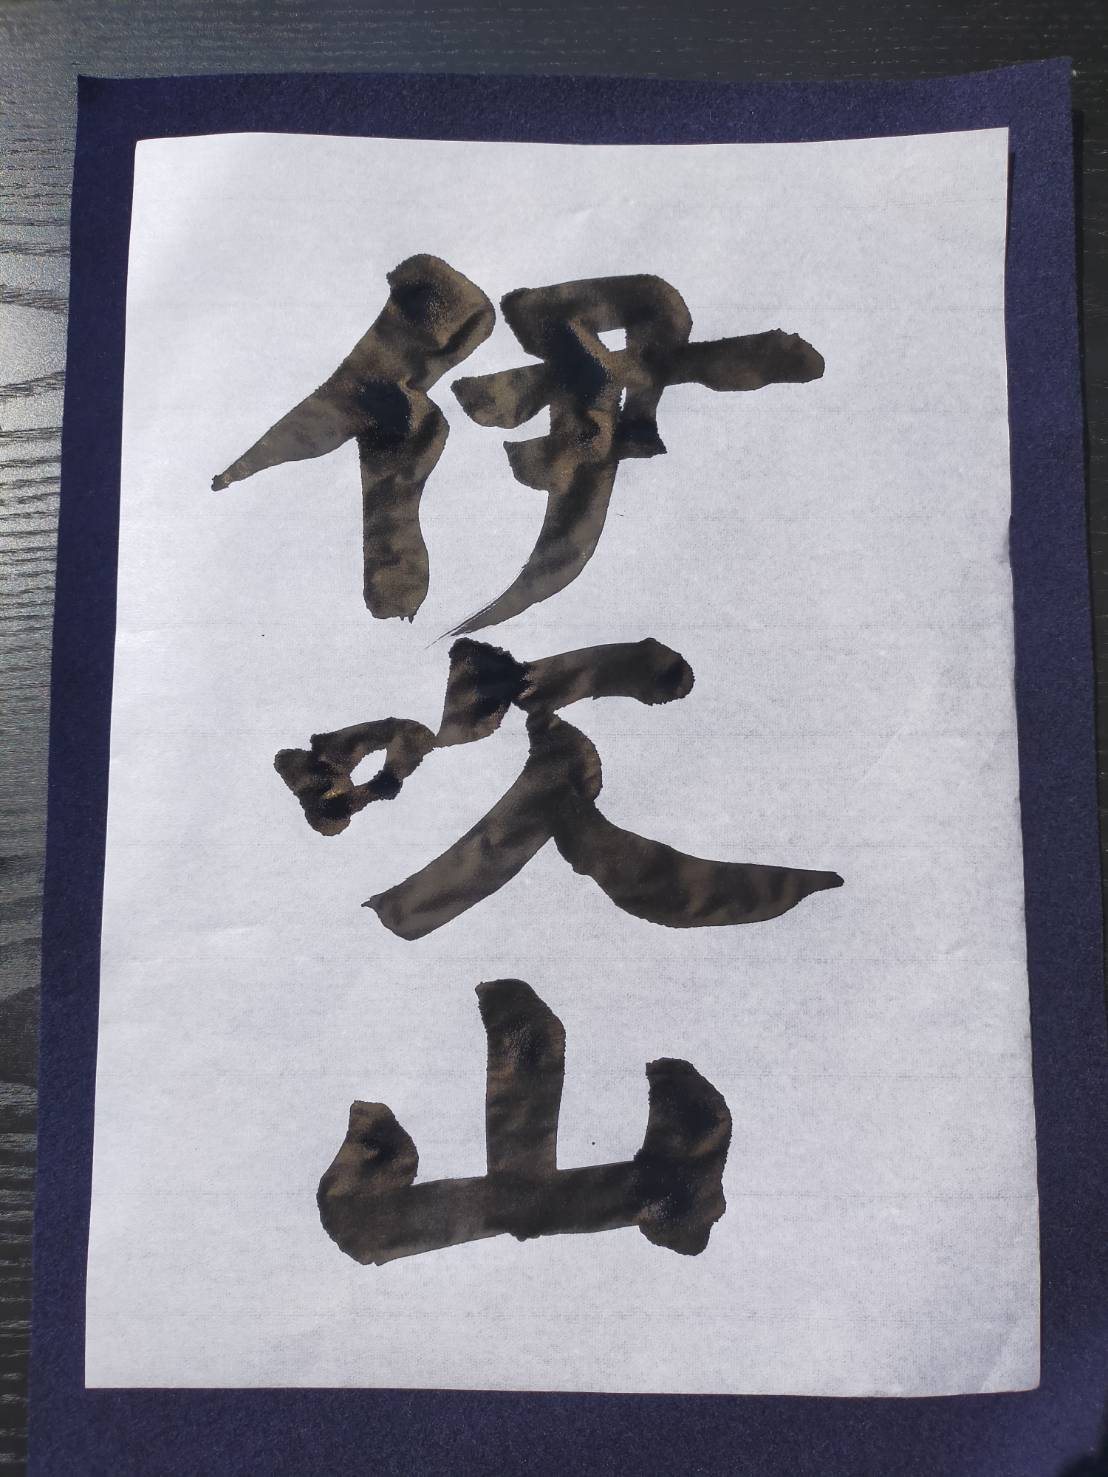 伊吹山